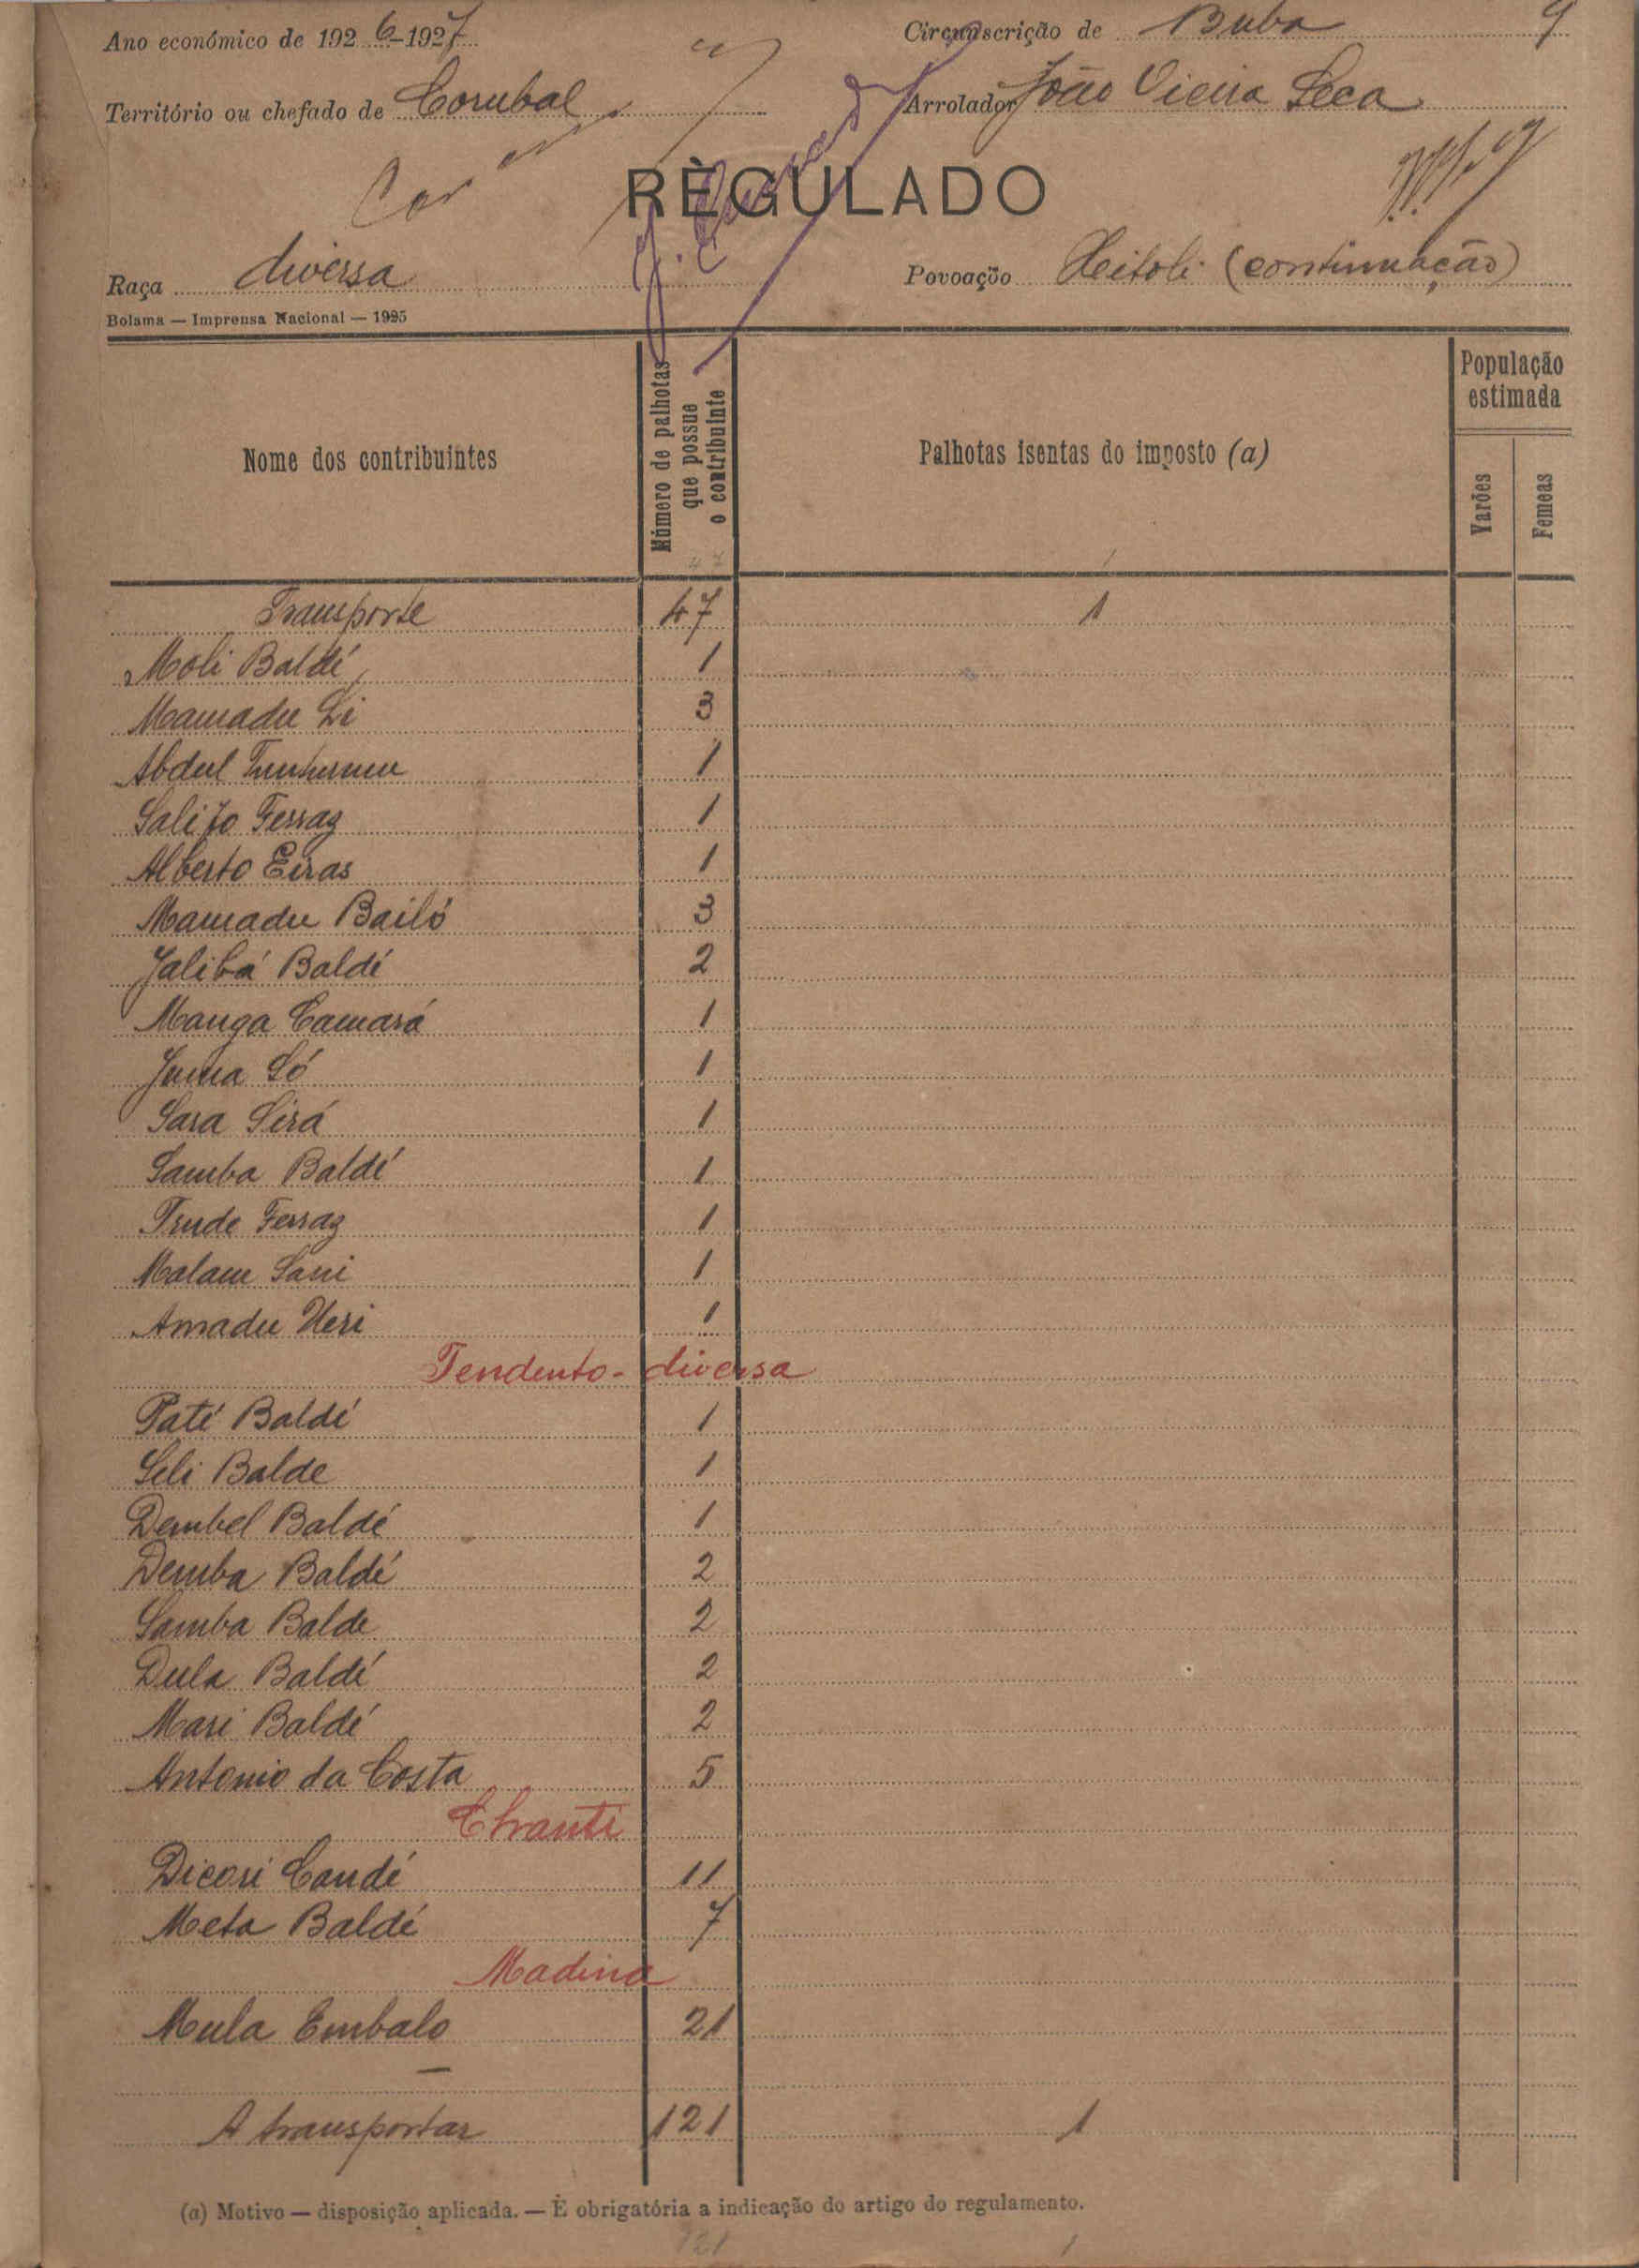 Ano económico de 1926-1927
Circunscrição de Buba 9
Território ou chefado de Corubal
Arrolador João Vieira Seca
RÈGULADO
Raça diversa
Povoação Xeitoli (continuação)
Bolama — Imprensa Nacional — 1925
Nome dos contribuintes
Número de palhotas que possue o contribuinte
Palhotas isentas do imposto (a)
População estimada
Varões
Femeas
47 1
Transporte 47 1
Moli Baldé 1
Mamadu Li 3
Abdul 1
Salifo Ferraz 1
Alberto Eiras 1
Mamadu Bailó 3
Jalibá Baldé 2
Manga Camará 1
Juma Só 1
Sara Sirá 1
Samba Baldé 1
Trude Ferraz 1
Malam Sani 1
Amadu Neri 1
Tendento - diversa
Paté Baldé 1
Seli Balde 1
Dembel Baldé 1
Demba Baldé 2
Samba Balde 2
Dula Baldé 2
Mari Baldé 2
Antonio da Costa 5
Chanti
Dicori Candé 11
Meta Baldé 7
Madina
Mula Embalo 21
A transportar 121 1
(a) Motivo — disposição aplicada. — É obrigatória a indicação do artigo do regulamento.
121 1